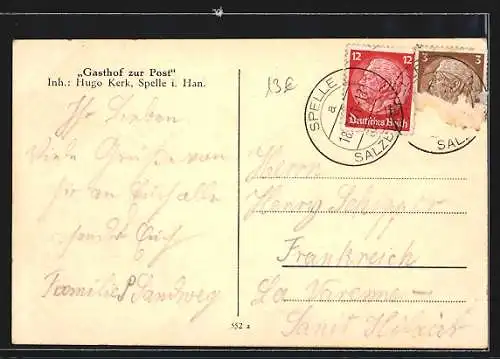 „Gasthof zur Post"
Inh.: Hugo Kerk, Spelle i. Han.
13€
12 12
Deutsches Reich
3 3
SPELLE
a
18.
SALZB
SALZ
Ihr Lieben
Viele Grüße von
hier an Euch alle
sendet Euch
Familie Sandweg
Herrn
Henry
Frankreich
La Varenne-
Saint
552 a